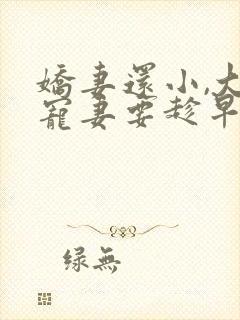 嬌妻還小,大
寵妻要趁早
绿無